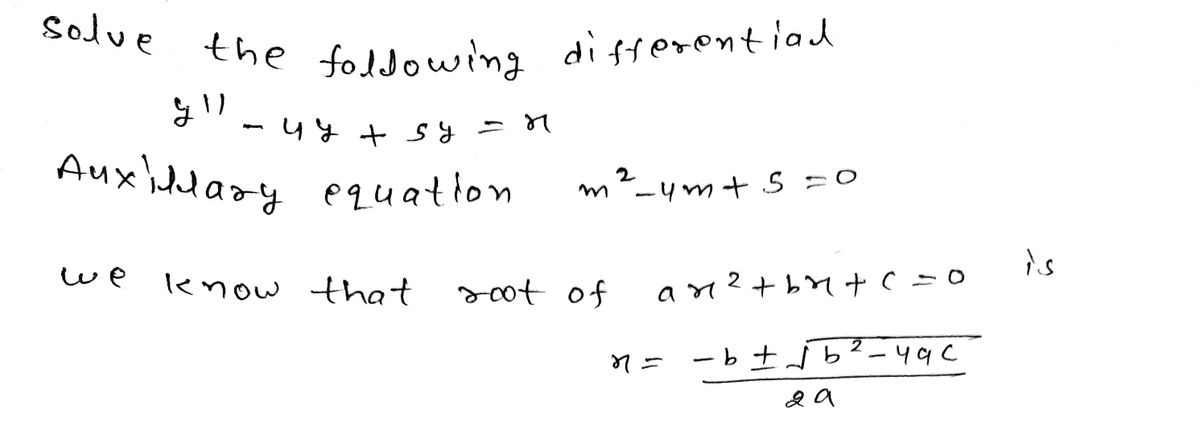 solve the following differential
y'' - 4y + 5y = x
Auxillary equation m² - 4m + 5 = 0
we know that root of ax² + bx + c = 0 is
x = (-b ± √(b² - 4ac)) / 2a